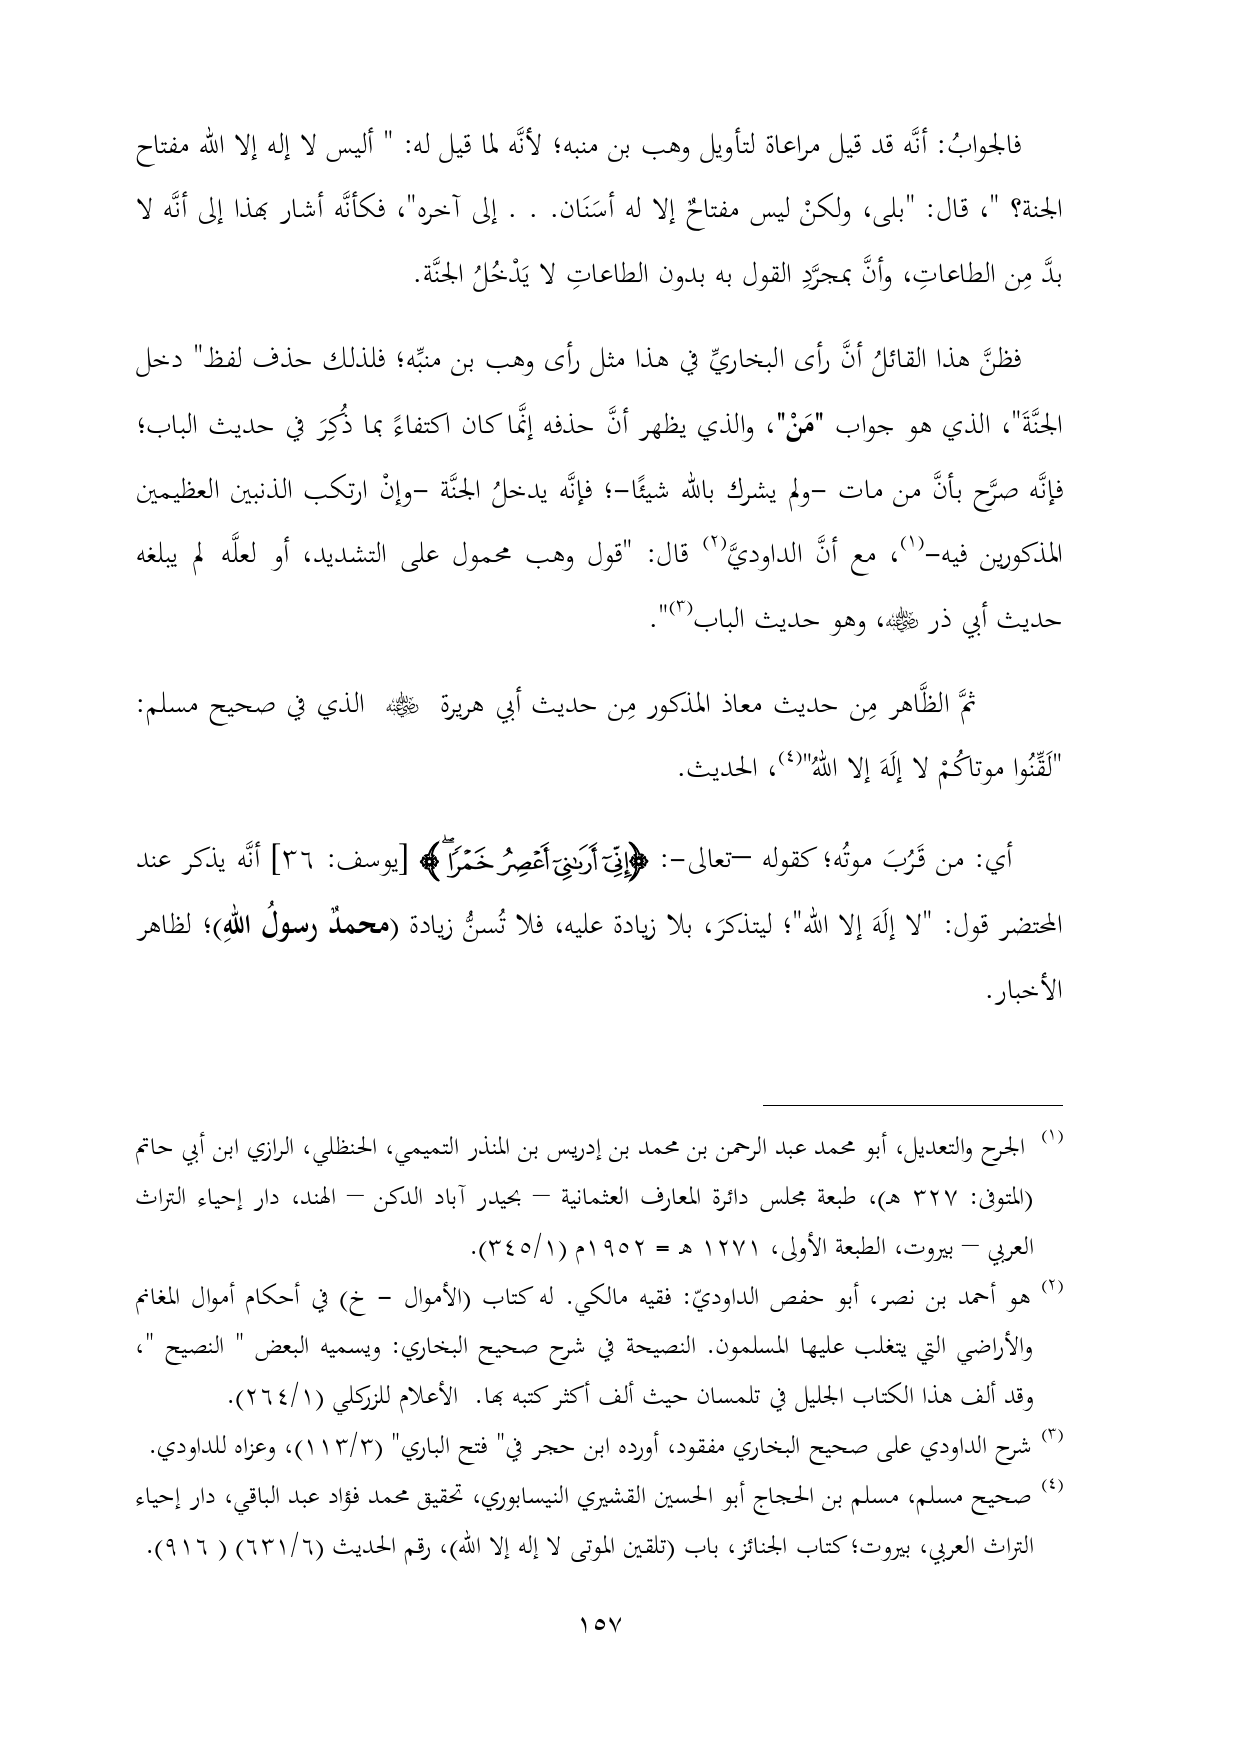 فالجوابُ: أنَّه قد قيل مراعاة لتأويل وهب بن منبه؛ لأنَّه لما قيل له: " أليس لا إله إلا الله مفتاح
الجنة؟ "، قال: "بلى، ولكنْ ليس مفتاحٌ إلا له أسَنَان. . . إلى آخره"، فكأنَّه أشار بهذا إلى أنَّه لا
بدَّ مِن الطاعاتِ، وأنَّ بمجرَّدِ القول به بدون الطاعاتِ لا يَدْخُلُ الجنَّة.
فظنَّ هذا القائلُ أنَّ رأى البخاريِّ في هذا مثل رأى وهب بن منبِّه؛ فلذلك حذف لفظ" دخل
الجنَّةَ"، الذي هو جواب "مَنْ"، والذي يظهر أنَّ حذفه إنَّما كان اكتفاءً بما ذُكِرَ في حديث الباب؛
فإنَّه صرَّح بأنَّ من مات -ولم يشرك بالله شيئًا-؛ فإنَّه يدخلُ الجنَّة -وإنْ ارتكب الذنبين العظيمين
المذكورين فيه-(١)، مع أنَّ الداوديَّ(٢) قال: "قول وهب محمول على التشديد، أو لعلَّه لم يبلغه
حديث أبي ذر رضي الله عنه، وهو حديث الباب(٣)".
ثمَّ الظَّاهر مِن حديث معاذ المذكور مِن حديث أبي هريرة رضي الله عنه الذي في صحيح مسلم:
"لَقِّنُوا موتاكُمْ لا إلَهَ إلا اللهُ"(٤)، الحديث.
أي: من قَرُبَ موتُه؛ كقوله –تعالى-: ﴿إِنِّيٓ أَرَىٰنِيٓ أَعۡصِرُ خَمۡرٗاۖ﴾ [يوسف: ٣٦] أنَّه يذكر عند
المحتضر قول: "لا إلَهَ إلا الله"؛ ليتذكرَ، بلا زيادة عليه، فلا تُسنُّ زيادة (محمدٌ رسولُ اللهِ)؛ لظاهر
الأخبار.
(١) الجرح والتعديل، أبو محمد عبد الرحمن بن محمد بن إدريس بن المنذر التميمي، الحنظلي، الرازي ابن أبي حاتم
(المتوفى: ٣٢٧ هـ)، طبعة مجلس دائرة المعارف العثمانية – بحيدر آباد الدكن – الهند، دار إحياء التراث
العربي – بيروت، الطبعة الأولى، ١٢٧١ هـ = ١٩٥٢م (٣٤٥/١).
(٢) هو أحمد بن نصر، أبو حفص الداوديّ: فقيه مالكي. له كتاب (الأموال - خ) في أحكام أموال المغانم
والأراضي التي يتغلب عليها المسلمون. النصيحة في شرح صحيح البخاري: ويسميه البعض " النصيح "،
وقد ألف هذا الكتاب الجليل في تلمسان حيث ألف أكثر كتبه بها. الأعلام للزركلي (٢٦٤/١).
(٣) شرح الداودي على صحيح البخاري مفقود، أورده ابن حجر في" فتح الباري" (١١٣/٣)، وعزاه للداودي.
(٤) صحيح مسلم، مسلم بن الحجاج أبو الحسين القشيري النيسابوري، تحقيق محمد فؤاد عبد الباقي، دار إحياء
التراث العربي، بيروت؛ كتاب الجنائز، باب (تلقين الموتى لا إله إلا الله)، رقم الحديث (٦٣١/٦) ( ٩١٦).
١٥٧